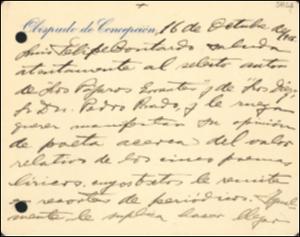 Obispado de Concepción, 16 de Octubre de
Luis Felipe Contardo saluda
atentamente al selecto autor
de Los Pájaros Errantes y de "Los Diez",
Sr. Don Pedro Prado, y le ruega
querer manifestar su opinión
de poeta acerca del valor
relativo de los cinco poemas
líricos, cuyos textos le remite
en recortes de periódicos. Igual
mente le suplica hacer llegar